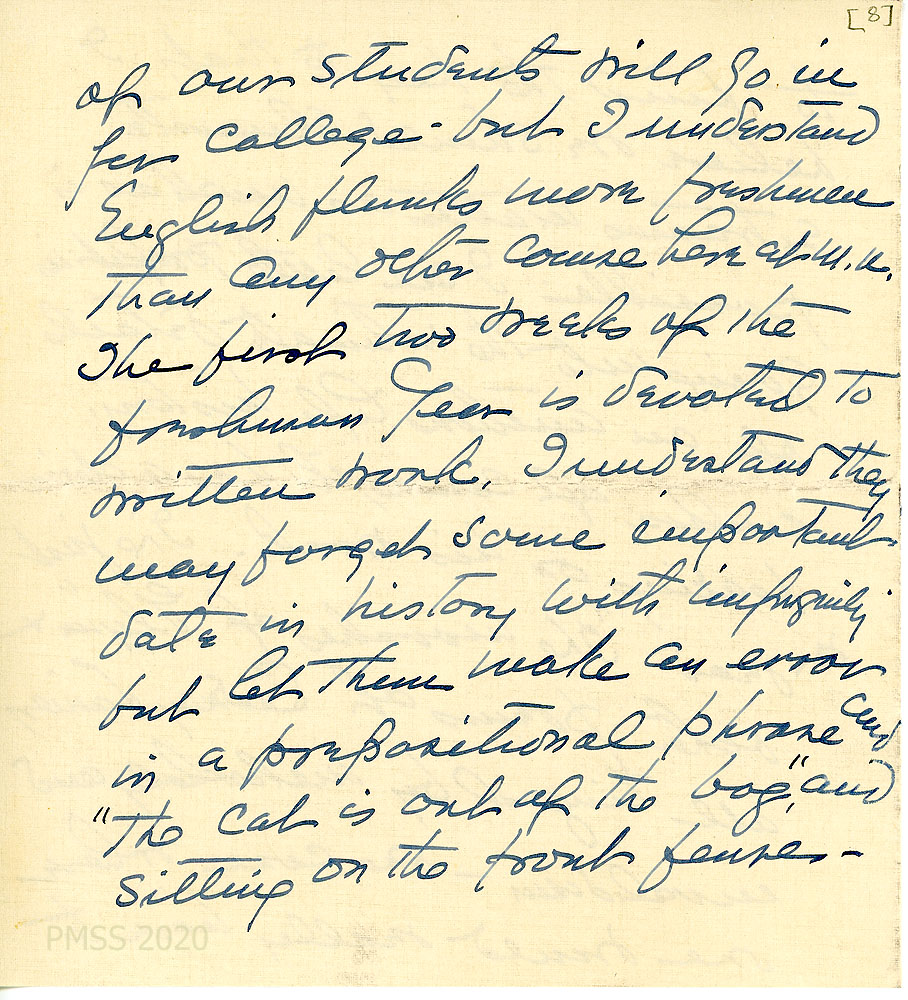 [8]
of our students will go in
for college - but I understand
English flunks more freshmen
than any other course here at M.U.
The first two weeks of the
freshman year is devoted to
written work. I understand they
may forget some important
date in history with impunity
but let them make an error
in a prepositional phrase and
"the cat is out of the bag", and
sitting on the front fence -
PMSS 2020